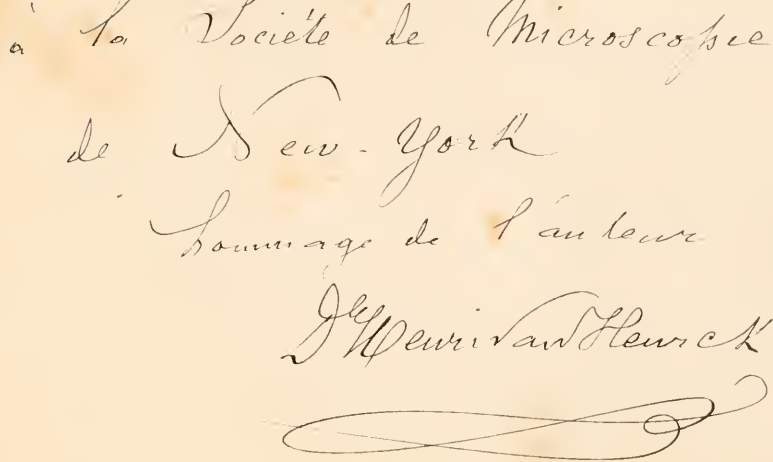 à la Société de Microscopie
de New-York
hommage de l'auteur
Dr Henri Van Heurck